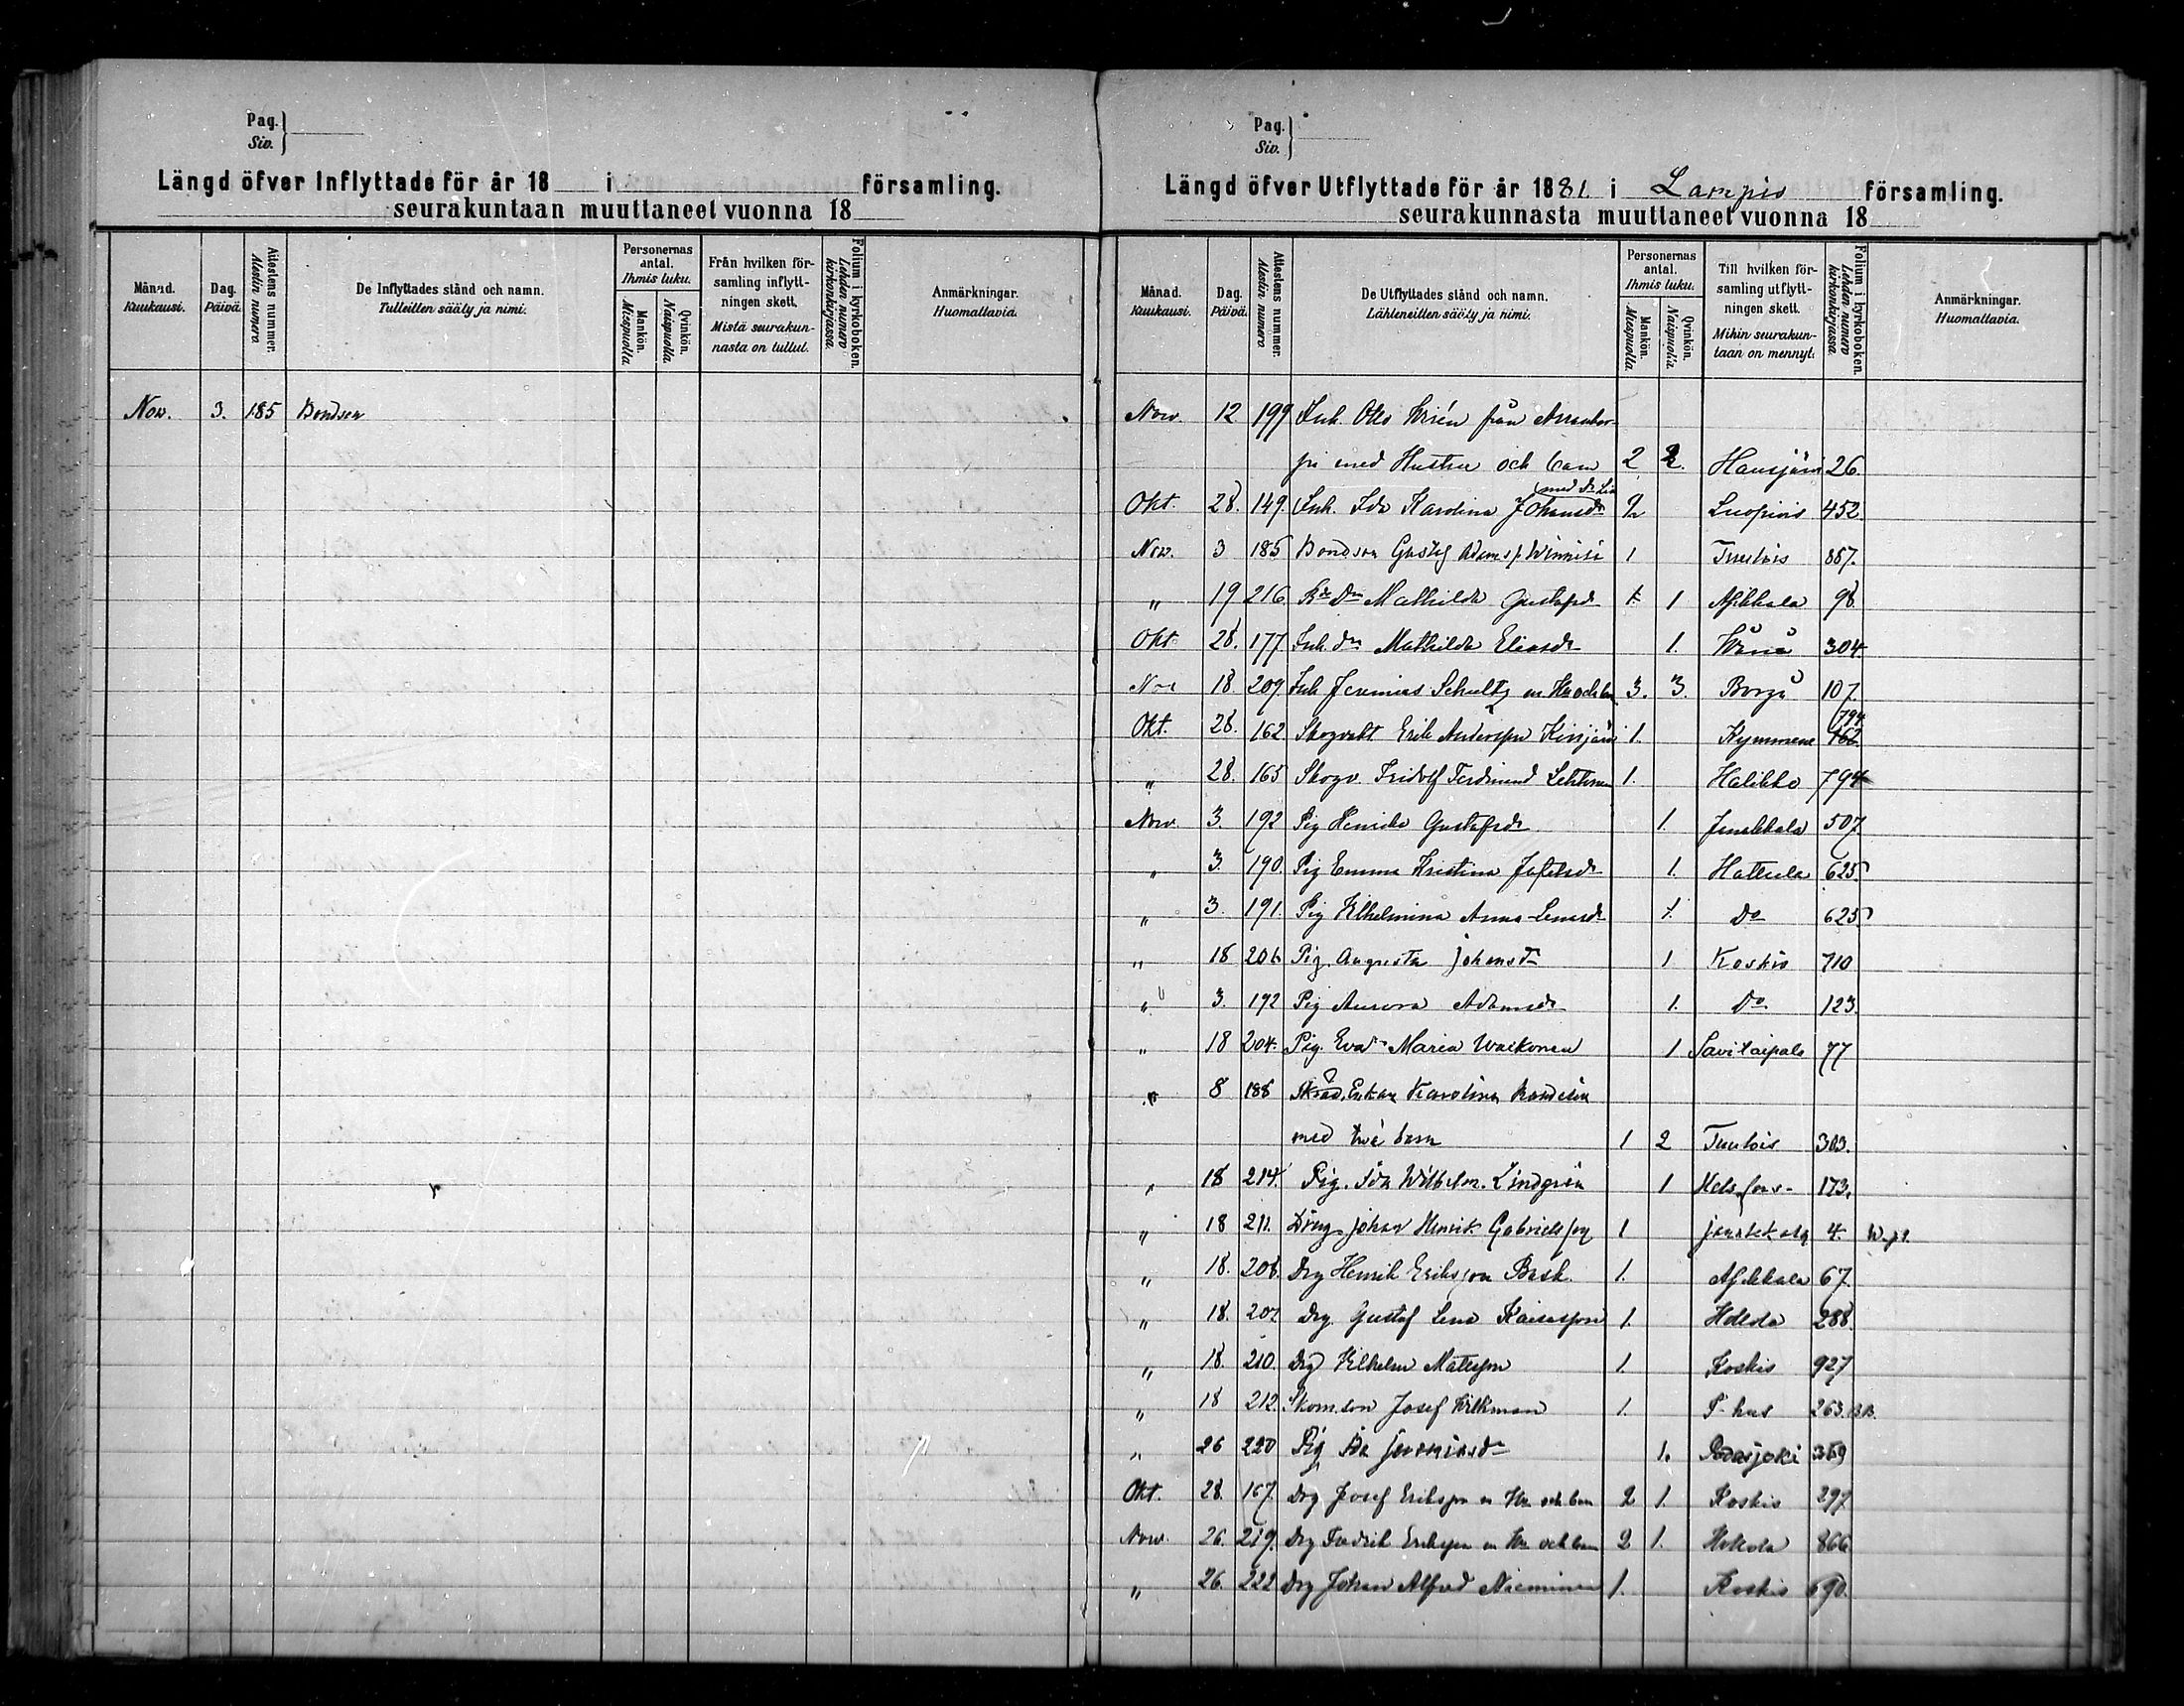 Pag.
Siv.
Längd öfver Inflyttade för år 18 i församling.
seurakuntaan muuttaneet vuonna 18
Månad.
Kuukausi.
Dag.
Päivä.
Attestens nummer.
Atestin numero
De Inflyttades stånd och namn.
Tulleitten sääty ja nimi.
Personernas antal.
Ihmis luku.
Mankön.
Miespuolia
Qvinkön.
Naispuolia
Från hvilken för-
samling inflytt-
ningen skett.
Mistä seurakun-
nasta on tullut.
Folium i kyrkoboken.
Lehden numero kirkonkirjassa.
Anmärkningar.
Huomattavia.
Nov. 3. 185 Bondson
Pag.
Siv.
Längd öfver Utflyttade för år 1881. i Lampis församling.
seurakunnasta muuttaneet vuonna 18
Månad.
Kuukausi.
Dag.
Päivä.
Attestens nummer.
Atestin numero
De Utflyttades stånd och namn.
Lähteneitten sääty ja nimi.
Personernas antal.
Ihmis luku.
Mankön.
Miespuolia.
Qvinkön.
Naispuolia
Till hvilken för-
samling utflytt-
ningen skett.
Mihin seurakun-
taan on mennyt.
Folium i kyrkoboken.
Lehden numero kirkonkirjassa.
Anmärkningar.
Huomattavia.
Nov. 12 199 Inh. Otto från
med Hustru och barn 2 2. Hausjärvi 26.
Okt. 28. 149. Inh. Ida Karolina Johansdr 2 Luopiois 452.
Nov. 3 185 Bondson Gustaf Adamsf. 1 Tuulois 887.
" 19 216 Mathilda Gustafsdr 1 Asikkala 98
Okt 28. 177 Inh. dr Mathilda Eliasdr 1. Wånå 304
Nov 18. 209. Inh Jeremias Schultz m Hu och barn 3. 3. Borgå 107
Okt. 28. 162. Skogvakt. Erik Andersson 1. Kymmene 162 794
" 28. 165 Skogv. Fridolf Ferdinand Lehtonen 1. Halikko 794
Nov 3. 192 Pig Henrika Gustafsdr 1. Janakkala 507
" 3. 190. Pig Emma Kristina 1. Hattula 625
" 3. 191. Pig Wilhelmina Anna-Lenasdr 1. Do 625
" 18 206 Pig. Augusta Johansdr 1 Koskis 710
" 3. 192 Pig Aurora Adamsdr 1. Do 123
" 18 204. Pig. Eva Maria Walkonen 1 Savitaipale 77
" 8 188 Enkan Karolina
med två barn 1 2 Tuulois 303.
" 18 214. Pig. Ida Wilhelm. Lindgren 1 Hels.fors- 173.
" 18 211. Dräng Johan Henrik Gabrielsson 1 Janakkala 4.
" 18. 208. Drg Henrik Eriksson Bask 1. Asikkala 67.
" 18. 207 Drg. Gustaf Lena Kaisasson 1. Hollola 288.
" 18. 210. Drg Wilhelm Matsson 1. Koskis 927
" 18 212. Skom.son Josef Wilkman 1. T-hus 263.
" 26 220 Pig Ida Jeremiasdr 1. Padasjoki 369
Okt. 28. 167. Drg Josef Eriksson m Hu och barn 2 1. Koskis 297
Nov. 26. 219. Drg Fredrik Eriksson m Hu och barn 2 1. Hollola 866
" 26. 222 Drg Johan Alfred Nieminen 1. Koskis 690.